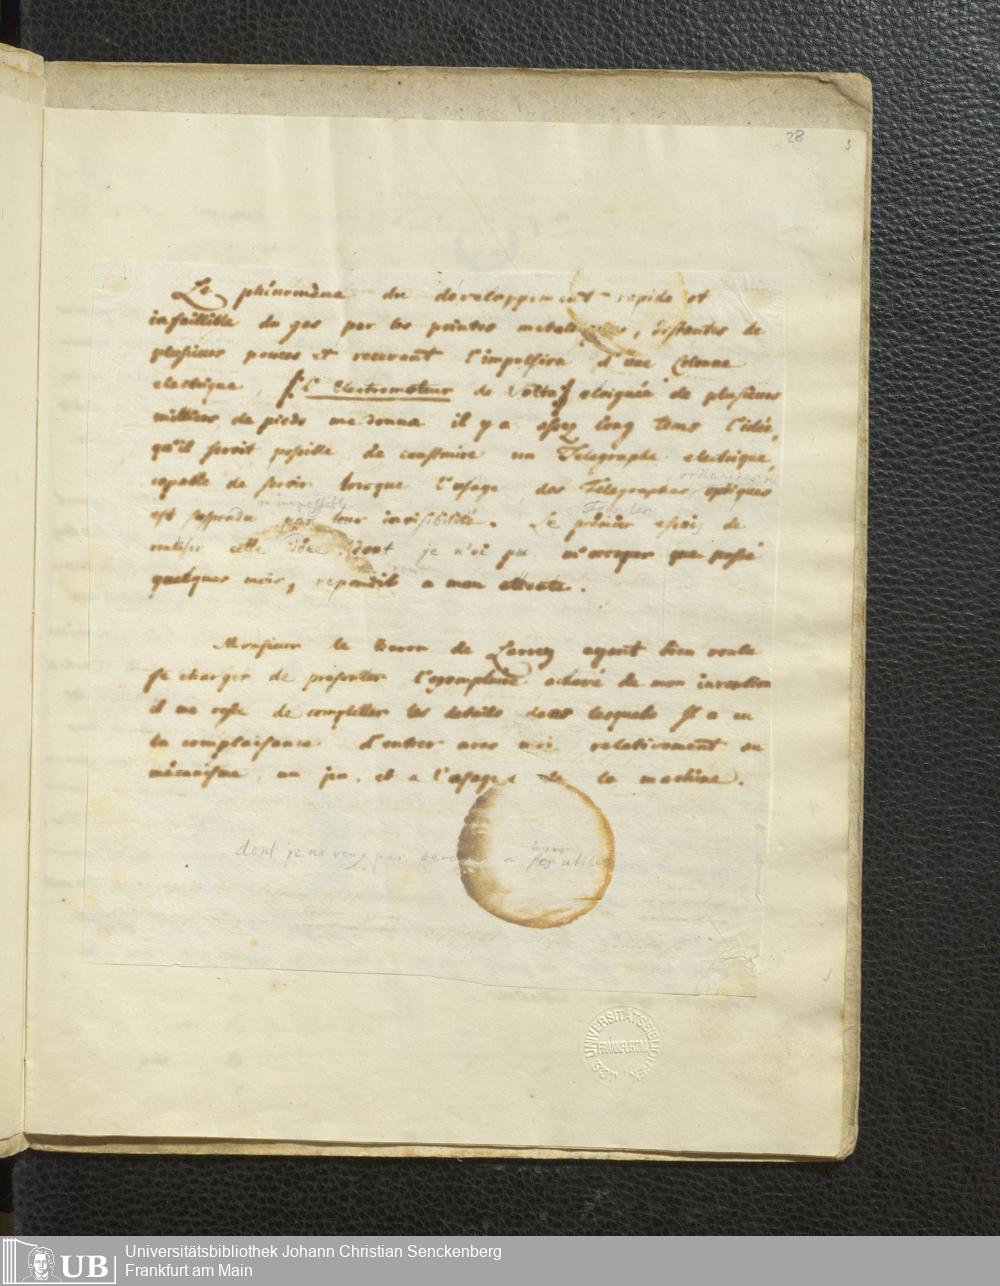 28
Le phénomène du développement rapide et
infaillible du gas par les pointes metaliques, distantes de
plusieurs pouces et recevant l'impulsion d'une Colonne
electrique, (l'Electromoteur de Volta) eloignée de plusieurs
milliers de pieds me donna il y a assez long tems l'idée,
qu'il seroit possible de construire un Telegraphe electrique,
ordinaires ou
capable de servir lorsque l'usage des Télégraphes optiques
ou impossible
est suspendu par leur invisibilité. Le prémier essai, de
realiser cette idée, dont je n'ai pu m'occuper que passé
quelques mois, repondit a mon attente.
Monsieur le Baron de Larrey ayant bien voulu
se charger de presenter l'exemplaire achevé de mon invention
il me reste de completter les details dans lesquels Il a eu
la complaisance d'entrer avec moi relativement au
mécanisme, au jeu, et a l'usage de la machine.
dont je ne veux pas
UNIVERSITÄTSBIBLIOTHEK
FRANKFURT/M.
Universitätsbibliothek Johann Christian Senckenberg
Frankfurt am Main
UB